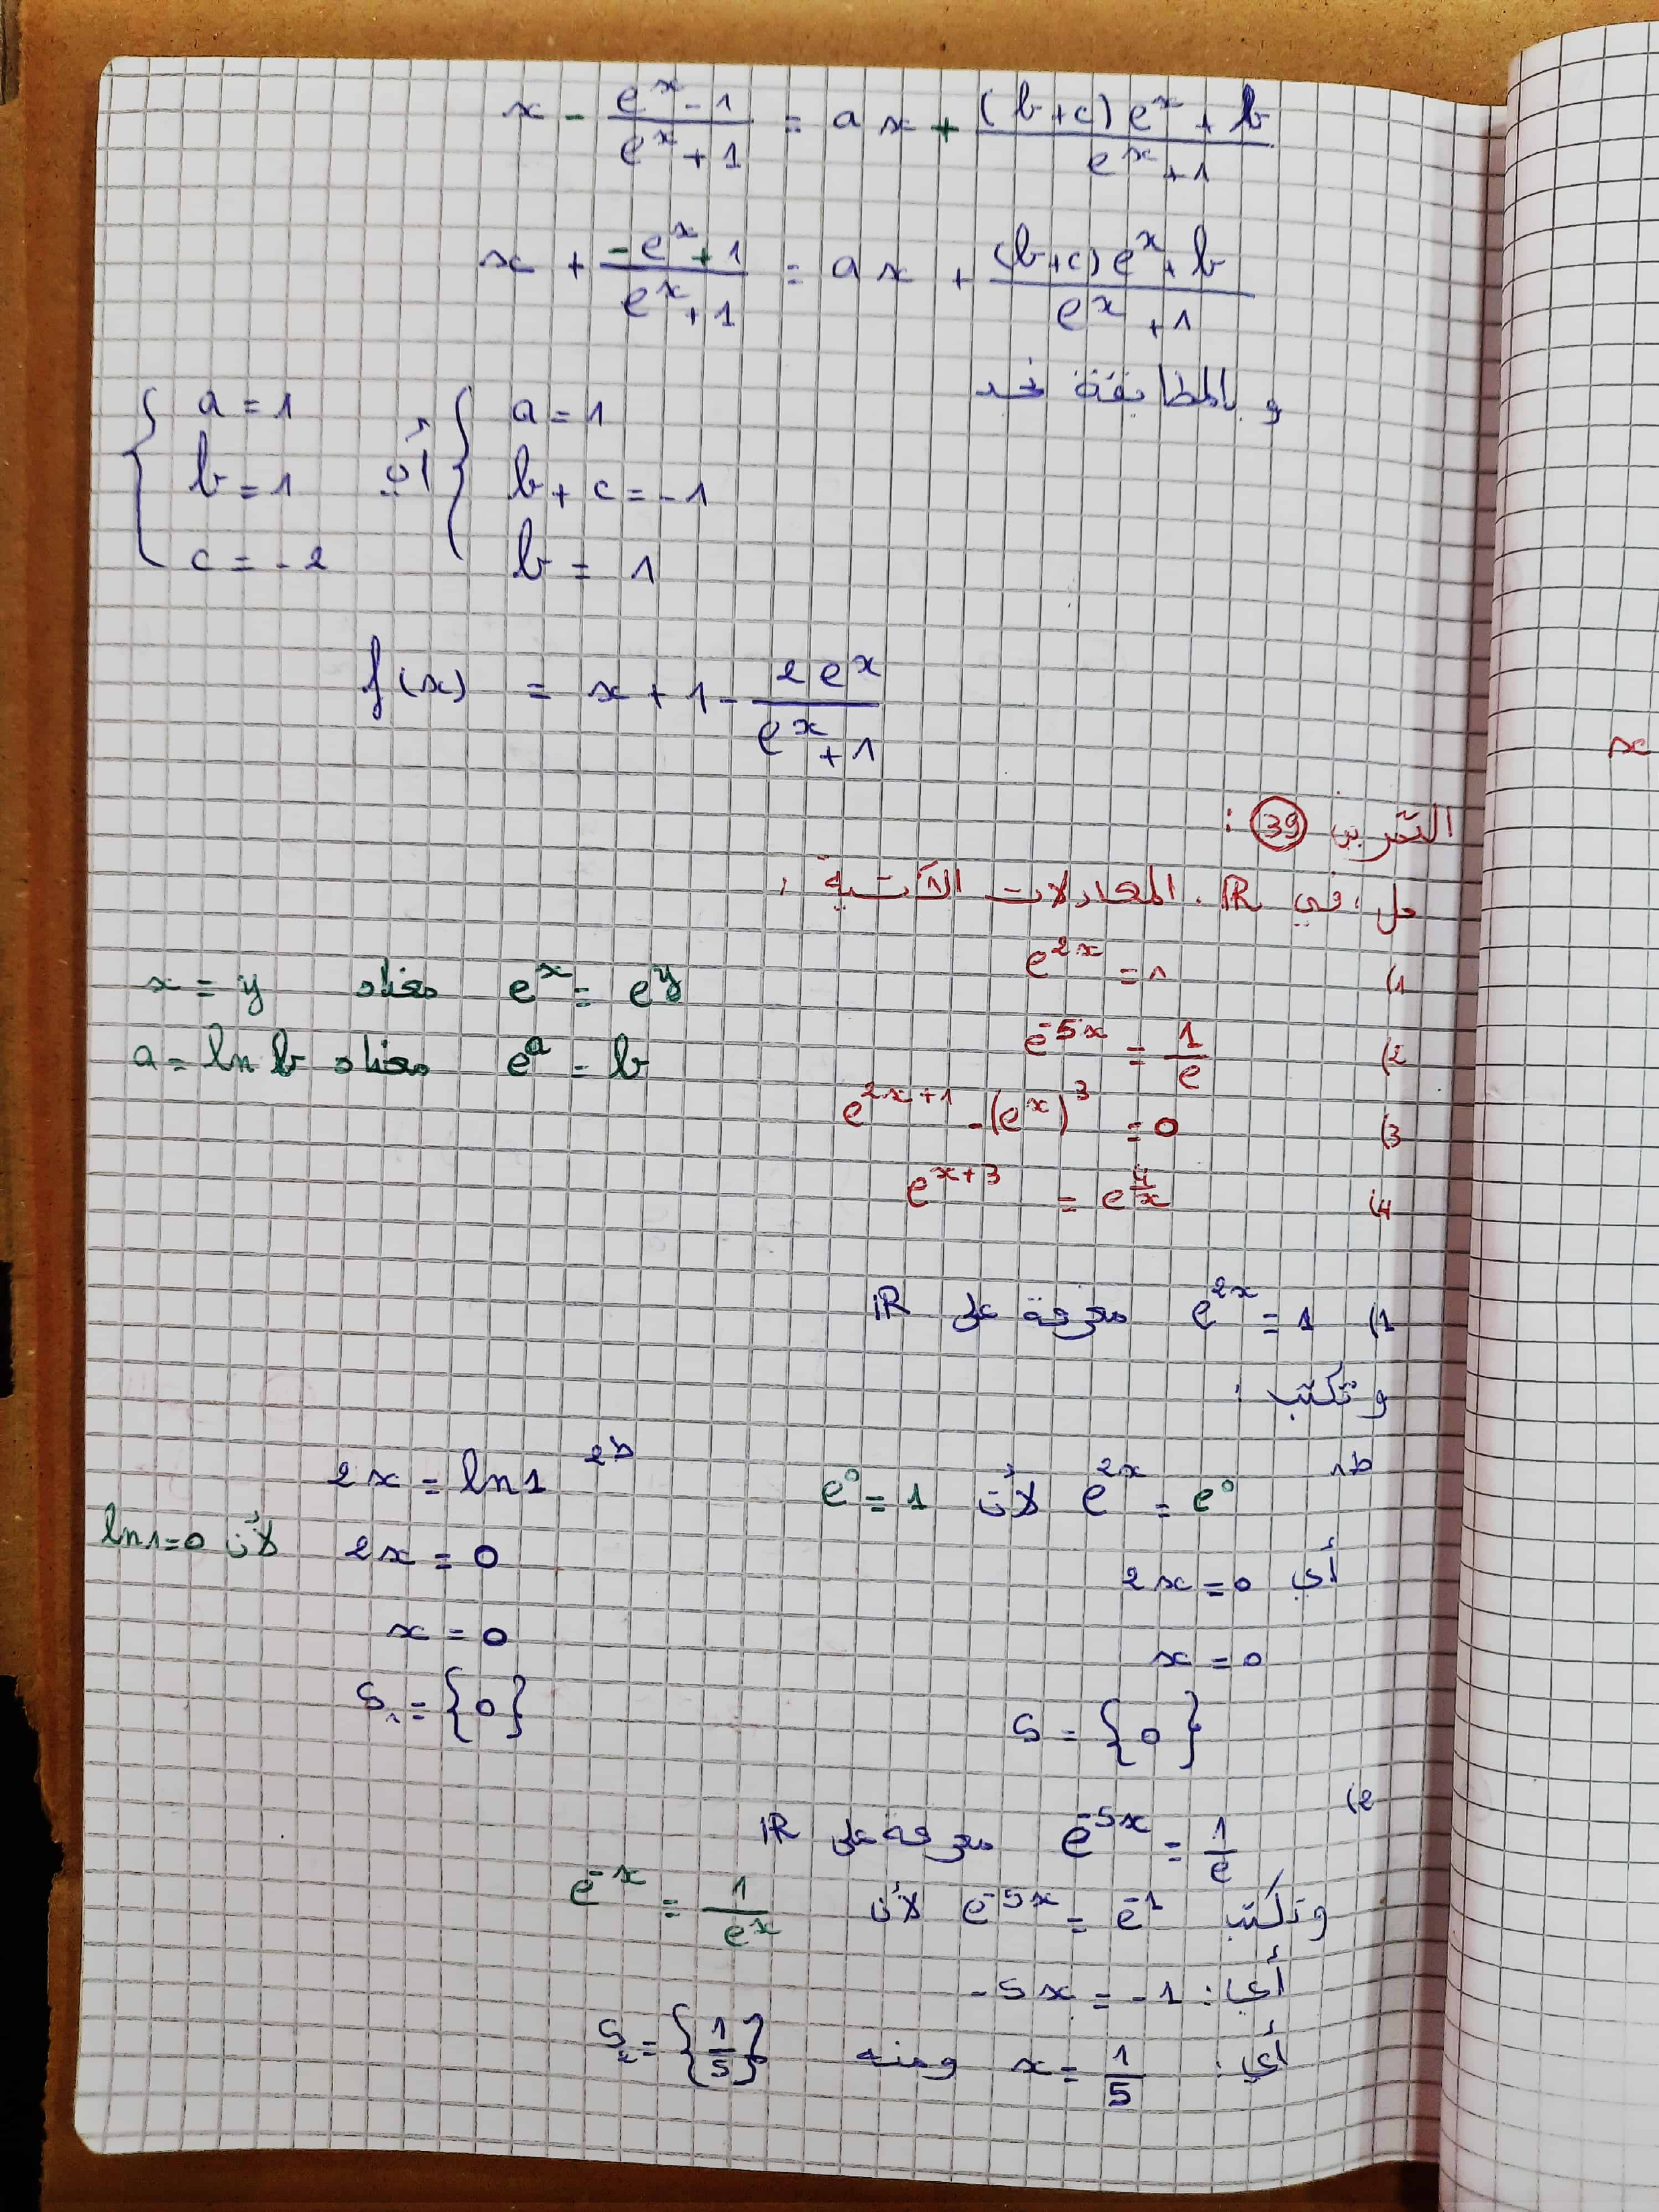 x - (e^x - 1)/(e^x + 1) = ax + ((b+c)e^x + b)/(e^x + 1)
x + (-e^x + 1)/(e^x + 1) = ax + ((b+c)e^x + b)/(e^x + 1)
و بالمطابقة نجد
{ a = 1 ; b + c = -1 ; b = 1 أي { a = 1 ; b = 1 ; c = -2
f(x) = x + 1 - 2e^x/(e^x + 1)
التمرين 39 :
حل ، في IR ، المعادلات الآتية :
1) e^{2x} = 1
2) e^{-5x} = 1/e
3) e^{2x+1} - (e^x)^3 = 0
4) e^{x+3} = e^{4/x}
e^x = e^y معناه x = y
e^a = b معناه a = ln b
1) e^{2x} = 1 معرفة على IR
وتكتب :
ط1 e^{2x} = e^0 لأن e^0 = 1
أي 2x = 0
x = 0
S = {0}
ط2 2x = ln1
2x = 0 لأن ln1 = 0
x = 0
S₁ = {0}
2)
e^{-5x} = 1/e معرفة على IR
وتكتب e^{-5x} = e^{-1} لأن e^{-x} = 1/e^x
أي : -5x = -1
أي : x = 1/5 ومنه S₂ = {1/5}
x